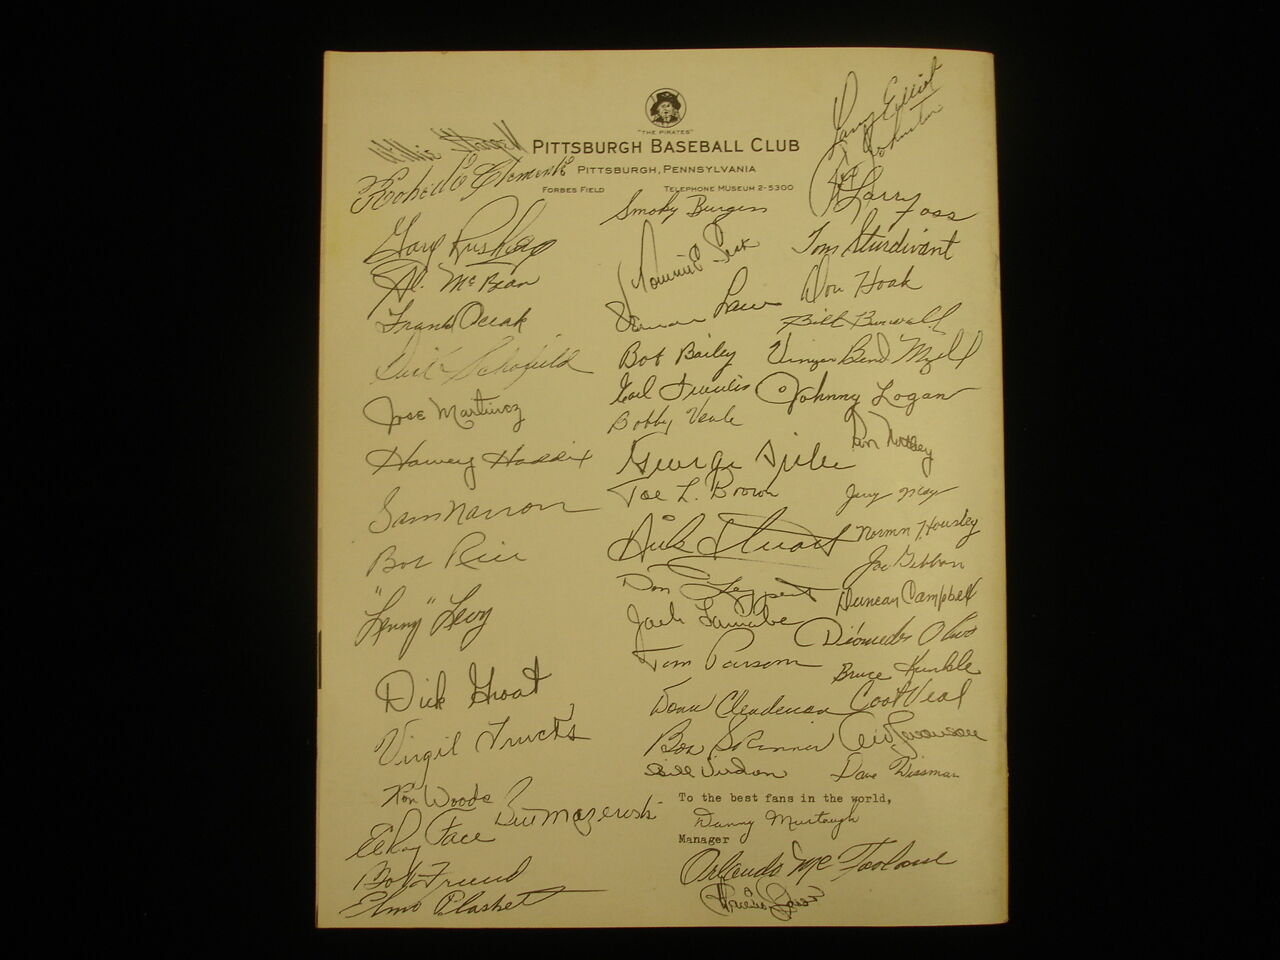 "THE PIRATES"
PITTSBURGH BASEBALL CLUB
PITTSBURGH, PENNSYLVANIA
FORBES FIELD TELEPHONE MUSEUM 2-5300
Willie Stargell
Roberto Clemente
Gary Rushing
Al. McBean
Frank Oceak
Dick Schofield
Jose Martinez
Harvey Haddix
Sam Narron
Bob Rice
"Lenny" Levy
Dick Groat
Virgil Trucks
Ron Woods
Bill Mazeroski
ElRoy Face
Bob Friend
Elmo Plaskett
Smoky Burgess
Vernon Law
Bob Bailey
Earl Francis
Bobby Veale
George Sisler
Joe L. Brown
Dick Stuart
Don Leppert
Jack Lamabe
Tom Parsons
Donn Clendenon
Bob Skinner
Bill Virdon
To the best fans in the world,
Danny Murtaugh
Manager
Orlando McFarlane
Larry Elliot
Johnston
Larry Foss
Tom Sturdivant
Don Hoak
Vinegar Bend Mizell
Johnny Logan
Jerry May
Norman Housley
Joe Gibbon
Duncan Campbell
Diomedes Olivo
Bruce Kunkle
Coot Veal
Dave Wissman